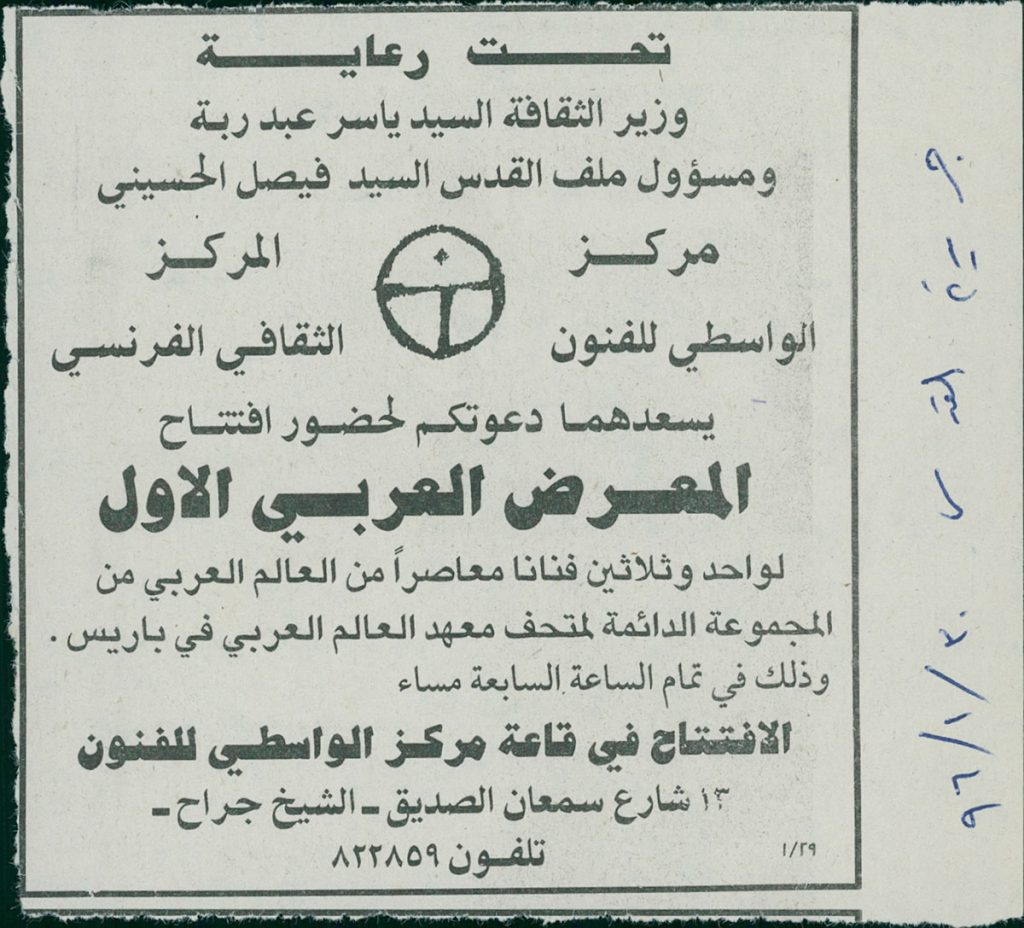 تحت رعاية
وزير الثقافة السيد ياسر عبد ربة
ومسؤول ملف القدس السيد فيصل الحسيني
مركز
الواسطي للفنون
المركز
الثقافي الفرنسي
يسعدهما دعوتكم لحضور افتتاح
المعرض العربي الاول
لواحد وثلاثين فنانا معاصراً من العالم العربي من
المجموعة الدائمة لمتحف معهد العالم العربي في باريس .
وذلك في تمام الساعة السابعة مساء
الافتتاح في قاعة مركز الواسطي للفنون
١٣ شارع سمعان الصديق ـ الشيخ جراح ـ
تلفون ٨٢٢٨٥٩
١/٢٩
جريدة القدس ٩٦/١/٣٠